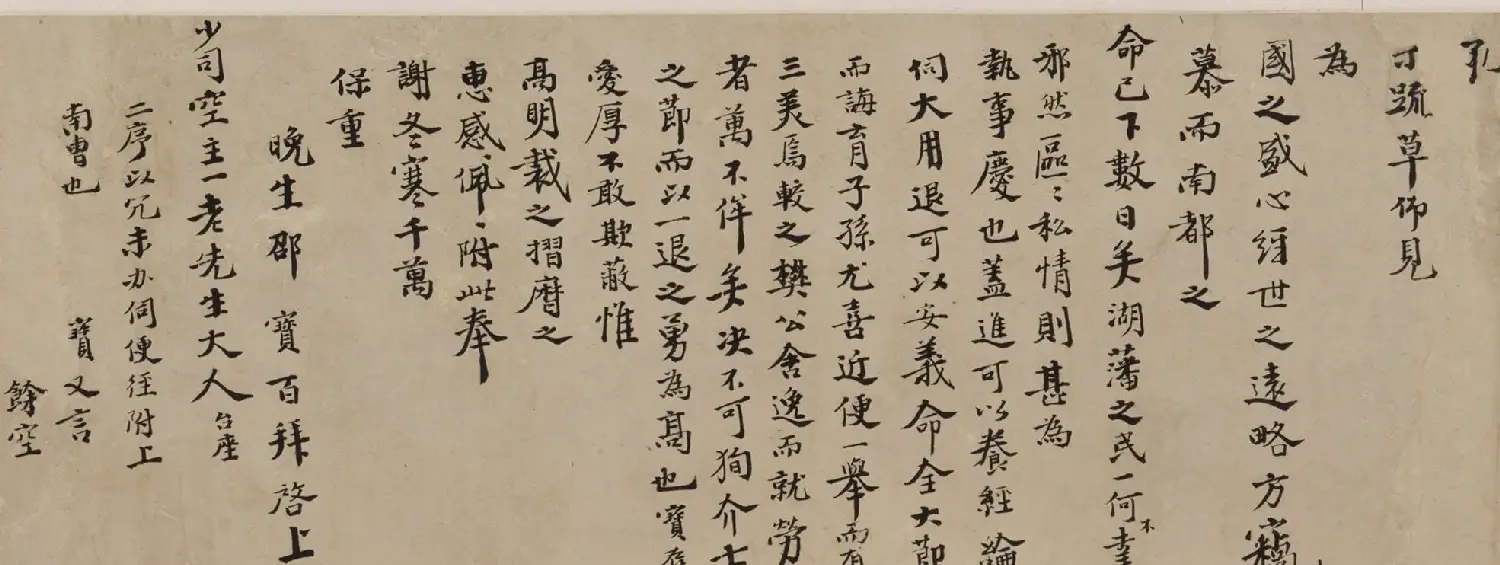 寸疏草仰見
為
國之盛心經世之遠略方竊
慕而南都之
命已下數日矣湖藩之民一何不幸
邪然區〻私情則甚為
執事慶也蓋進可以養經論
伺大用退可以安義命全大節
而誨育子孫尤喜近便一舉而有
三美焉較之樊公舍逸而就勞
者萬不侔矣决不可狥介士
之節而以一退之勇為高也寶辱
愛厚不敢欺蔽惟
高明裁之摺磨之
惠感佩〻附此奉
謝冬寒千萬
保重
晚生邵寶百拜啓上
少司空主一老先生大人台座
二序以冗未办伺便徑附上
南曹也 寶又言
餘空